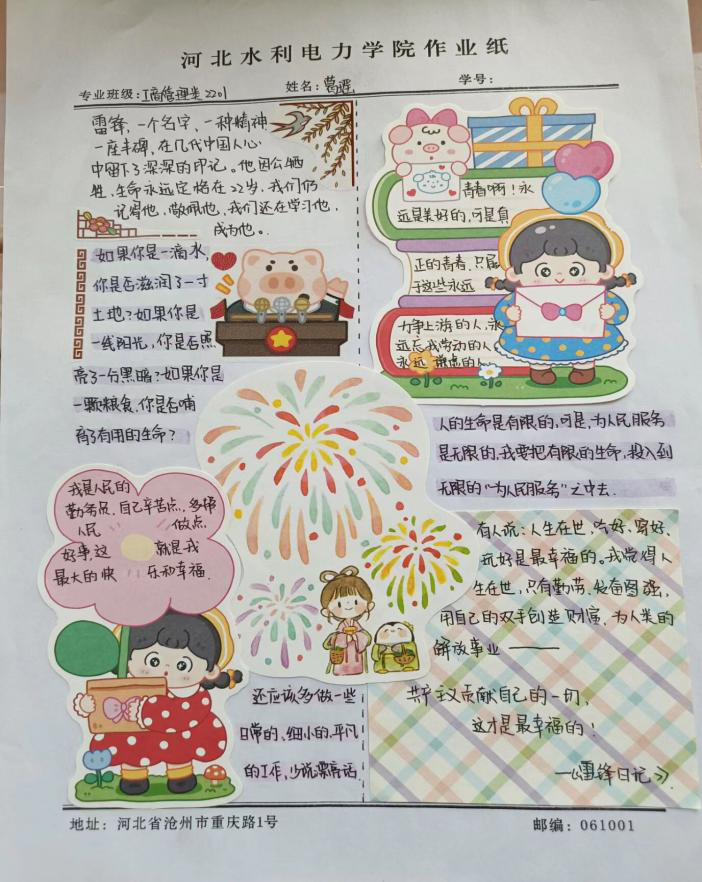 河北水利电力学院作业纸
专业班级:工商管理类2201 姓名: 学号:
雷锋,一个名字、一种精神
一座丰碑,在几代中国人心
中留下了深深的印记。他因公牺
牲,生命永远定格在22岁,我们仍
记得他,敬佩他,我们还在学习他,
成为他。
如果你是一滴水,
你是否滋润了一寸
土地?如果你是
一线阳光,你是否照
亮了一分黑暗?如果你是
一颗粮食,你是否哺
育了有用的生命?
青春啊!永
远是美好的,可是真
正的青春,只属
于这些永远
力争上游的人,永
远忘我劳动的人
永远谦虚的人
人的生命是有限的,可是,为人民服务
是无限的,我要把有限的生命,投入到
无限的“为人民服务”之中去.
我是人民的
勤务员,自己辛苦点,多帮
人民 做点
好事,这 就是我
最大的快 乐和幸福.
有人说:人生在世,吃好、穿好、
玩好是最幸福的。我觉得人
生在世,只有勤劳、发奋图强,
用自己的双手创造财富,为人类的
解放事业——
共产主义贡献自己的一切,
这才是最幸福的!
—《雷锋日记》
还应该多做一些
日常的、细小的、平凡
的工作,少说漂亮话
地址:河北省沧州市重庆路1号 邮编:061001